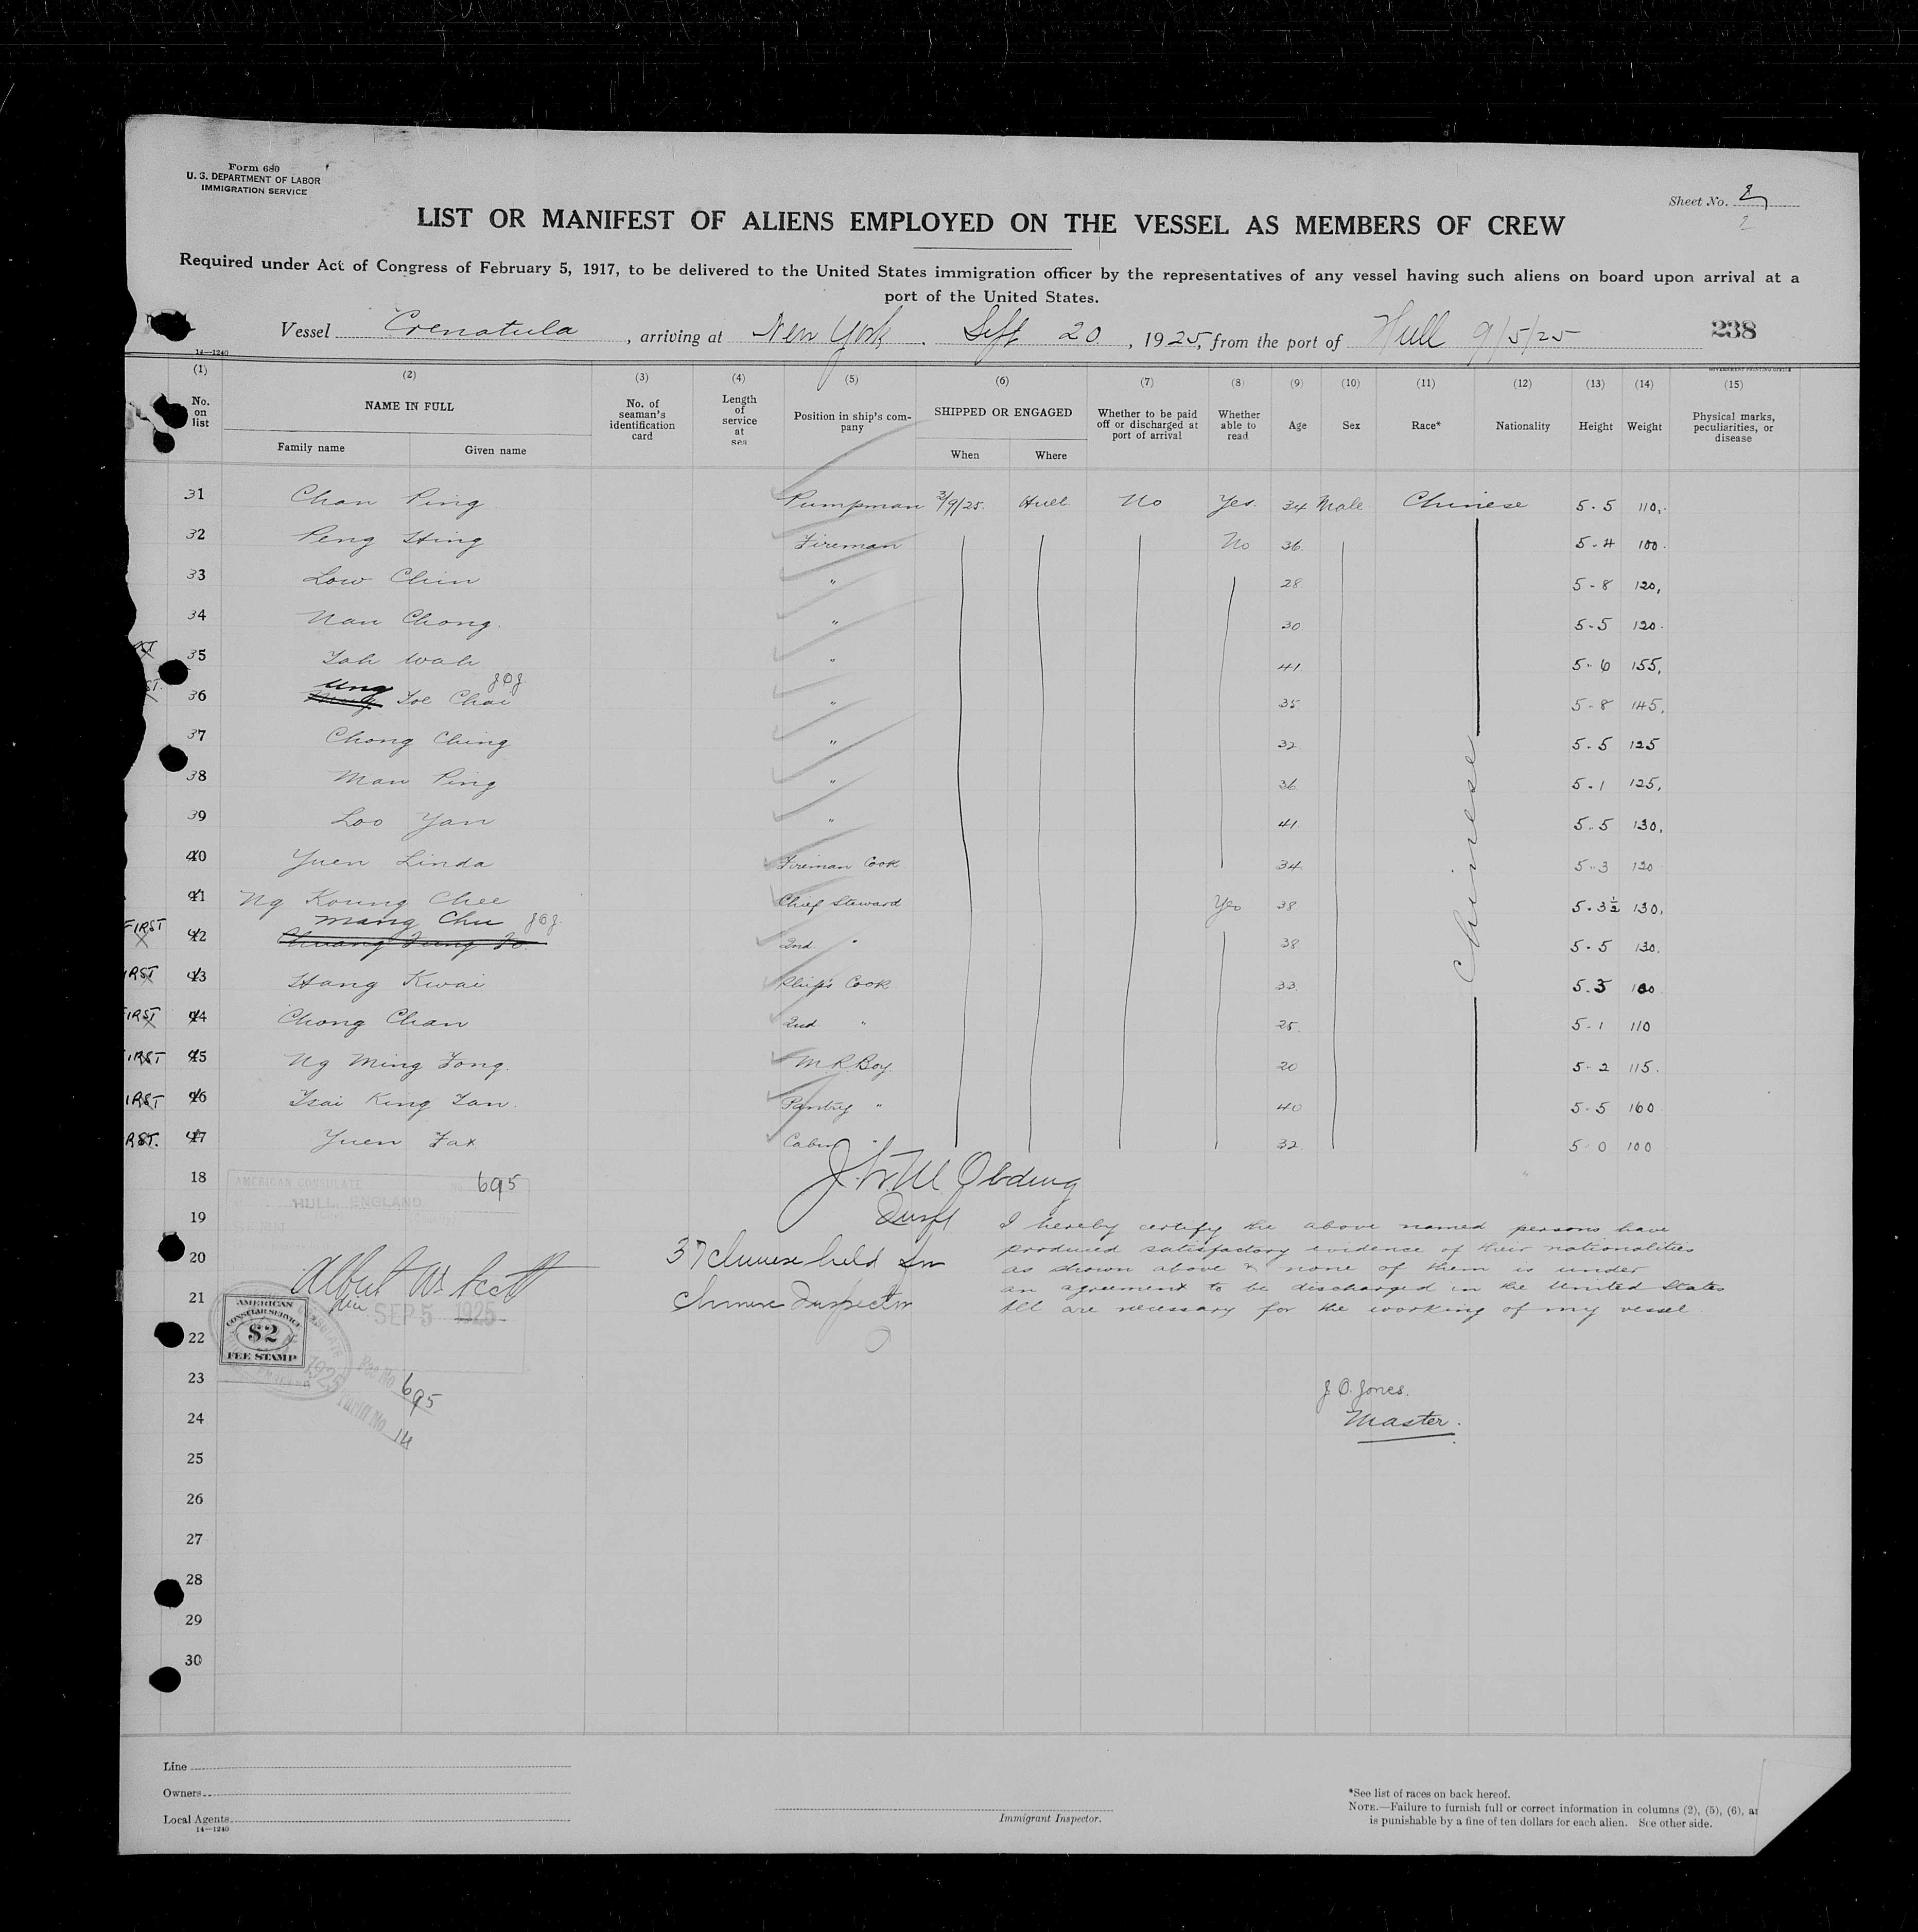 Form 680
U. S. DEPARTMENT OF LABOR
IMMIGRATION SERVICE
Sheet No. 2
2
LIST OR MANIFEST OF ALIENS EMPLOYED ON THE VESSEL AS MEMBERS OF CREW
Required under Act of Congress of February 5, 1917, to be delivered to the United States immigration officer by the representatives of any vessel having such aliens on board upon arrival at a
port of the United States.
Vessel Crenatula, arriving at New York. Sept 20, 1925, from the port of Hull 9/5/25 238
14—1240
GOVERNMENT PRINTING OFFICE
(1) (2) (3) (4) (5) (6) (7) (8) (9) (10) (11) (12) (13) (14) (15)
No. on list NAME IN FULL Family name Given name No. of seaman's identification card Length of service at sea Position in ship's company SHIPPED OR ENGAGED When Where Whether to be paid off or discharged at port of arrival Whether able to read Age Sex Race* Nationality Height Weight Physical marks, peculiarities, or disease
31 Chan Ping Pumpman 3/9/25. Hull No Yes. 34 Male Chinese 5.5 110.
32 Peng Hing Fireman No 36. 5.4 100.
33 Low Chin " 28 5-8 120,
34 Nan Chong. " 30 5-5 120.
35 Yoh Wah " 41. 5.6 155,
Ung JOJ
36 Joe Chai " 35 5-8 145,
37 Chong Ching " 32 5.5 125
38 Man Ping " 36 5.1 125,
39 Loo Yan " 41. 5.5 130,
40 Yuen Linda Fireman Cook 34. 5.3 120
41 Ng Koung Chee Chief Steward Yes 38 5.3½ 130,
Mang Chu JOJ.
FIRST 42 2nd " 38 5.5 130.
IRST 43 Hang Kwai Ship's Cook 33. 5.3 100.
FIRST 44 Chong Chan 2nd " 25. 5.1 110
IRST 45 Ng Ming Fong. M.R. Boy. 20 5.2 115.
IRST 46 Tsai King Zan. Pantry " 40 5.5 160
RST. 47 Yuen Fax Cabin 32 5.0 100
Chinese
18 AMERICAN CONSULATE No. 695
HULL, ENGLAND
SEEN
19
I hereby certify the above named persons have
produced satisfactory evidence of their nationalities
as shown above & none of them is under
an agreement to be discharged in the United States
All are necessary for the working of my vessel.
20 37 Chinese held for
Chinese Inspector
Albert W. Scott
21 SEP 5 1925
AMERICAN
CONSULAR SERVICE
$2
FEE STAMP
22
23 Fee No. 695
Tariff No. 14
J. O. Jones.
Master.
24
25
26
27
28
29
30
Line
Owners
Local Agents
14—1240
Immigrant Inspector.
*See list of races on back hereof.
NOTE.—Failure to furnish full or correct information in columns (2), (5), (6), a
is punishable by a fine of ten dollars for each alien. See other side.